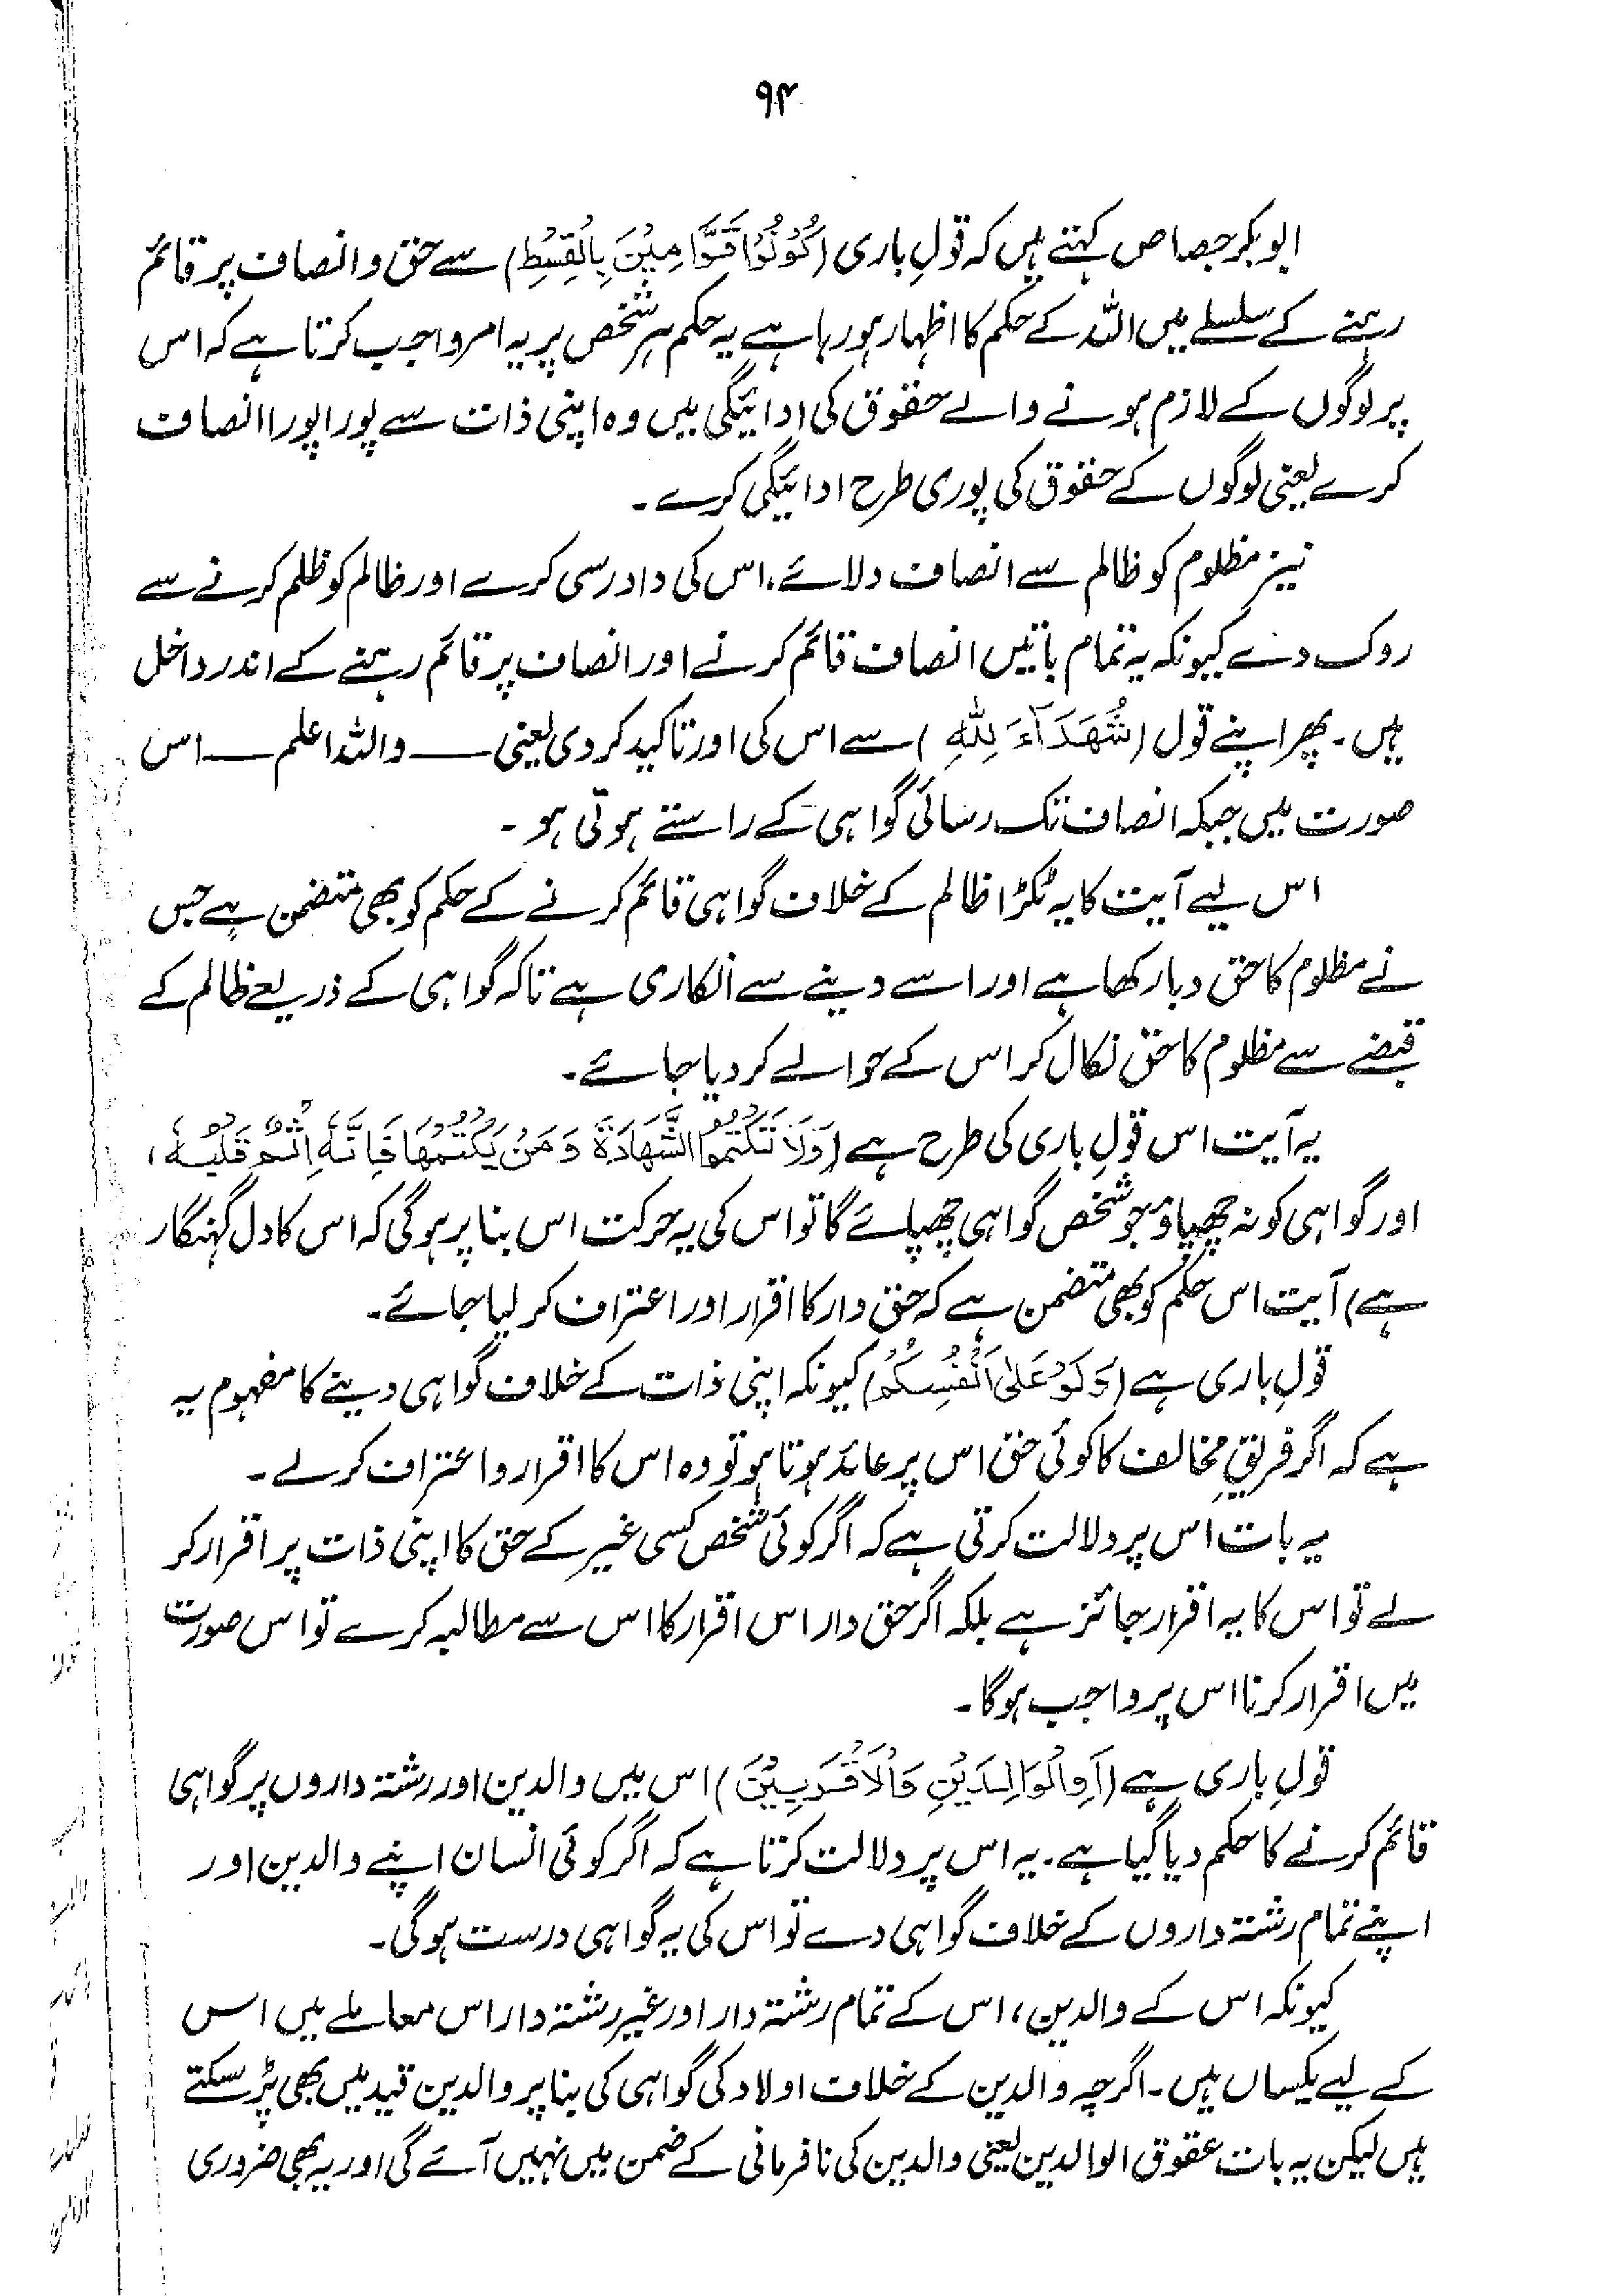 ۹۴
ابوبکر جصاص کہتے ہیں کہ قولِ باری (کُوْنُوْا قَوَّامِیْنَ بِالْقِسْطِ) سے حق و انصاف پر قائم
رہنے کے سلسلے میں اللہ کے حکم کا اظہار ہو رہا ہے یہ حکم ہر شخص پر یہ امر واجب کرتا ہے کہ اس
پر لوگوں کے لازم ہونے والے حقوق کی ادائیگی میں وہ اپنی ذات سے پورا پورا انصاف
کرے یعنی لوگوں کے حقوق کی پوری طرح ادائیگی کرے۔
نیز مظلوم کو ظالم سے انصاف دلائے، اس کی دادرسی کرے اور ظالم کو ظلم کرنے سے
روک دے کیونکہ یہ تمام باتیں انصاف قائم کرنے اور انصاف پر قائم رہنے کے اندر داخل
ہیں۔ پھر اپنے قول (شُهَدَآءَ لِلّٰهِ) سے اس کی اور تاکید کر دی یعنی ــــ واللہ اعلم ــــ اس
صورت میں جبکہ انصاف تک رسائی گواہی کے راستے ہوتی ہو۔
اس لیے آیت کا یہ ٹکڑا ظالم کے خلاف گواہی قائم کرنے کے حکم کو بھی متضمن ہے جس
نے مظلوم کا حق دبا رکھا ہے اور اسے دینے سے انکاری ہے تاکہ گواہی کے ذریعے ظالم کے
قبضے سے مظلوم کا حق نکال کر اس کے حوالے کر دیا جائے۔
یہ آیت اس قولِ باری کی طرح ہے (وَلَا تَکْتُمُوا الشَّهَادَةَ وَمَنْ یَّکْتُمْهَا فَاِنَّهٗ اٰثِمٌ قَلْبُهٗ،
اور گواہی کو نہ چھپاؤ جو شخص گواہی چھپائے گا تو اس کی یہ حرکت اس بنا پر ہوگی کہ اس کا دل گنہگار
ہے) آیت اس حکم کو بھی متضمن ہے کہ حق دار کا اقرار اور اعتراف کر لیا جائے۔
قولِ باری ہے (وَلَوْ عَلٰی اَنْفُسِکُمْ) کیونکہ اپنی ذات کے خلاف گواہی دینے کا مفہوم یہ
ہے کہ اگر فریقِ مخالف کا کوئی حق اس پر عائد ہوتا ہو تو وہ اس کا اقرار و اعتراف کرلے۔
یہ بات اس پر دلالت کرتی ہے کہ اگر کوئی شخص کسی غیر کے حق کا اپنی ذات پر اقرار کر
لے تو اس کا یہ اقرار جائز ہے بلکہ اگر حق دار اس اقرار کا اس سے مطالبہ کرے تو اس صورت
میں اقرار کرنا اس پر واجب ہوگا۔
قولِ باری ہے (اَوِ الْوَالِدَیْنِ وَالْاَقْرَبِیْنَ) اس میں والدین اور رشتہ داروں پر گواہی
قائم کرنے کا حکم دیا گیا ہے۔ یہ اس پر دلالت کرتا ہے کہ اگر کوئی انسان اپنے والدین اور
اپنے تمام رشتہ داروں کے خلاف گواہی دے تو اس کی یہ گواہی درست ہوگی۔
کیونکہ اس کے والدین، اس کے تمام رشتہ دار اور غیر رشتہ دار اس معاملے میں اس
کے لیے یکساں ہیں۔ اگرچہ والدین کے خلاف اولاد کی گواہی کی بنا پر والدین قید میں بھی پڑ سکتے
ہیں لیکن یہ بات عقوق الوالدین یعنی والدین کی نافرمانی کے ضمن میں نہیں آئے گی اور یہ بھی ضروری